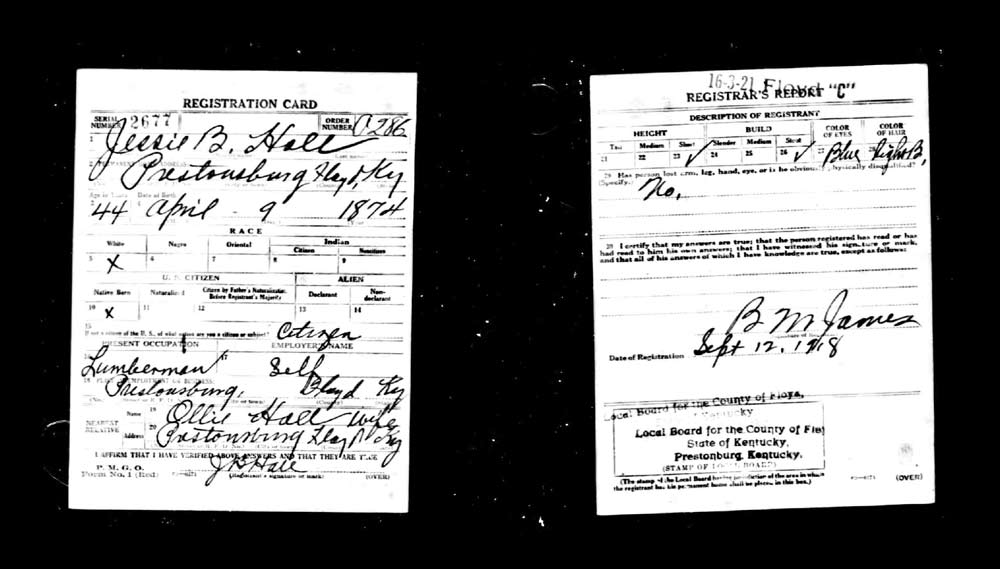 REGISTRATION CARD
SERIAL NUMBER 2677 ORDER NUMBER C286
1 Jessie B. Hall
2 PERMANENT HOME ADDRESS
Prestonsburg Floyd, Ky
Age in Years Date of Birth
44 April 9 1874
RACE
White Negro Oriental Indian
Citizen Noncitizen
5 X 6 7 8 9
U. S. CITIZEN ALIEN
Native Born Naturalized Citizen by Father's Naturalization Before Registrant's Majority Declarant Non-declarant
10 X 11 12 13 14
15 If not a citizen of the U. S., of what nation are you a citizen or subject? Citizen
PRESENT OCCUPATION EMPLOYER'S NAME
16 Lumberman 17 Self
18 PLACE OF EMPLOYMENT OR BUSINESS:
Prestonsburg, Floyd Ky
NEAREST RELATIVE Name 19 Ollie Hall - Wife
Address 20 Prestonsburg Floyd Ky
I AFFIRM THAT I HAVE VERIFIED ABOVE ANSWERS AND THAT THEY ARE TRUE
P. M. G. O.
Form No. 1 (Red) J B Hall
(Registrant's signature or mark) (OVER)
16-3-21 Floyd "C"
REGISTRAR'S REPORT
DESCRIPTION OF REGISTRANT
HEIGHT BUILD COLOR OF EYES COLOR OF HAIR
Tall Medium Short Slender Medium Stout
21 22 23 ✓ 24 25 26 ✓ 27 Blue 28 Light B,
29 Has person lost arm, leg, hand, eye, or is he obviously physically disqualified?
(Specify.) No,
30 I certify that my answers are true; that the person registered has read or has
had read to him his own answers; that I have witnessed his signature or mark,
and that all of his answers of which I have knowledge are true, except as follows:
B M James
Date of Registration Sept 12, 1918
Local Board for the County of Floyd,
Kentucky
Local Board for the County of Floy
State of Kentucky,
Prestonburg, Kentucky.
(STAMP OF LOCAL BOARD)
(The stamp of the Local Board having jurisdiction of the area in which
the registrant has his permanent home shall be placed in this box.)
(OVER)